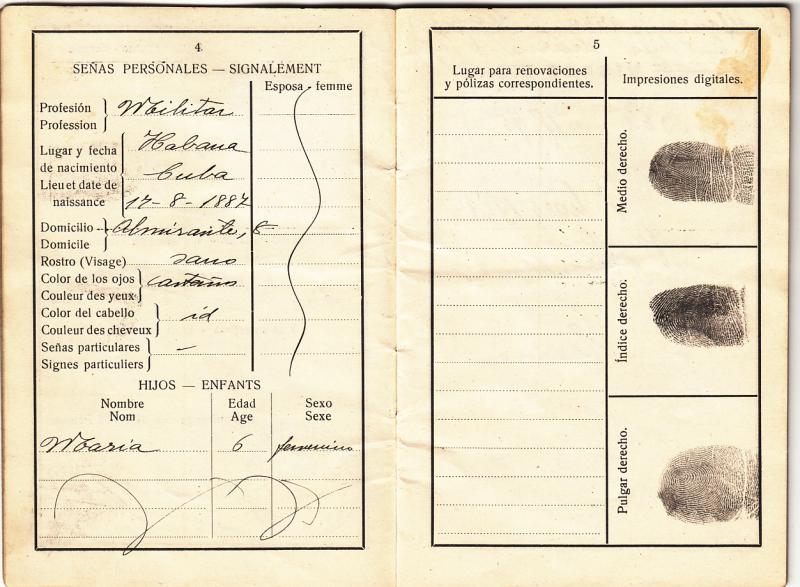 4
SEÑAS PERSONALES — SIGNALEMENT
Esposa - femme
Profesión
Profession
Militar
Lugar y fecha
de nacimiento
Lieu et date de
naissance
Habana
Cuba
17-8-1887
Domicilio
Domicile
Almirante, 8
Rostro (Visage) sano
Color de los ojos
Couleur des yeux
castaños
Color del cabello
Couleur des cheveux
id
Señas particulares
Signes particuliers
—
HIJOS — ENFANTS
Nombre Edad Sexo
Nom Age Sexe
Maria 6 femenino
5
Lugar para renovaciones
y pólizas correspondientes.
Impresiones digitales.
Medio derecho.
Índice derecho.
Pulgar derecho.